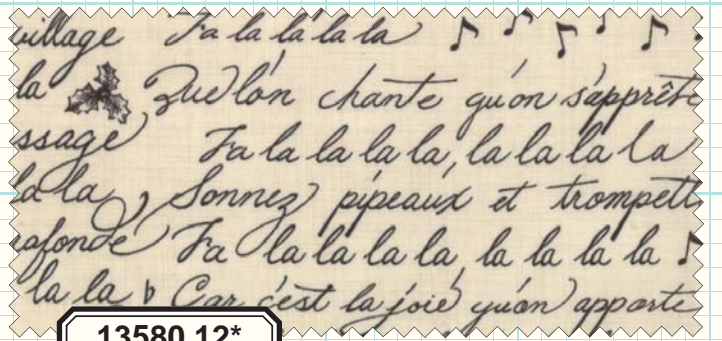 village Fa la la la la
la Que l'on chante qu'on s'apprêt
ssage Fa la la la la, la la la la
la la, Sonnez pipeaux et trompett
afonde Fa la la la la, la la la la
la la Car c'est la joie qu'on apporte
13580 12*